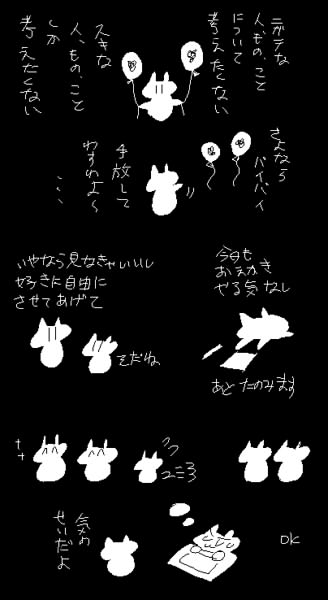 ニガテな
人、もの、こと
について
考えたくない
スキな
人、もの、こと
しか
考えたくない
さよなら
バイバイ
手放して
わすれよ〜
、、、
いやなら見なきゃいいし
好きに自由に
させてあげて
そだね
今日も
おえかき
やる気なし
あとたのみます
気の
せいだよ
OK